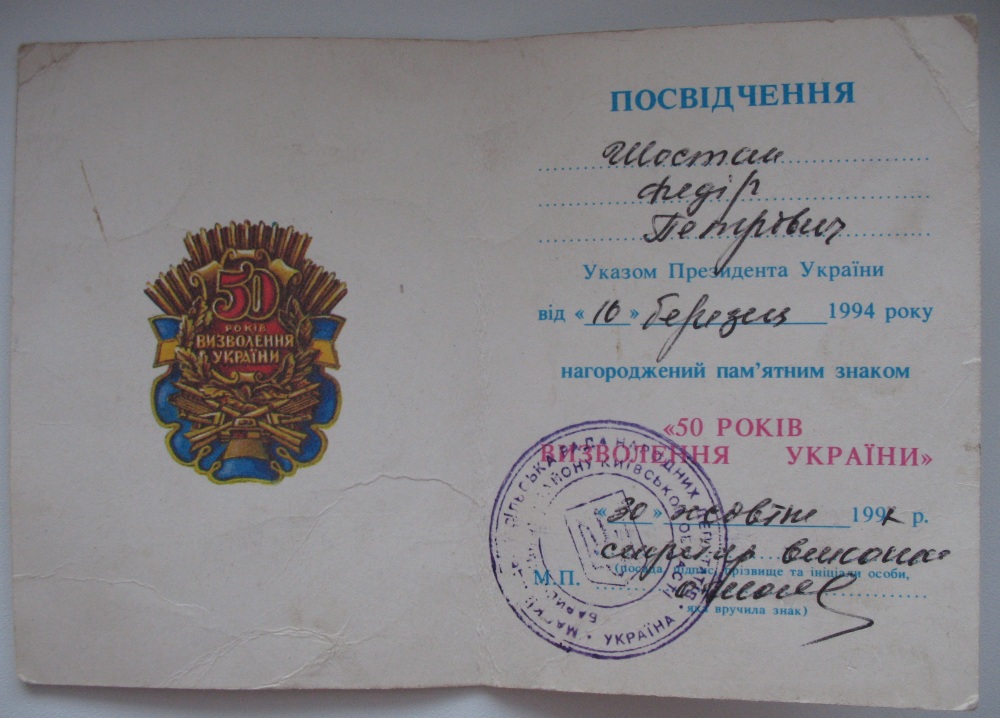 50
РОКІВ
ВИЗВОЛЕННЯ
УКРАЇНИ
ПОСВІДЧЕННЯ
Шостак
Федір
Петрович
Указом Президента України
від «10» березня 1994 року
нагороджений пам’ятним знаком
«50 РОКІВ
ВИЗВОЛЕННЯ УКРАЇНИ»
«30» жовтня 199 р.
секретар виконкому
М.П. (посада, підпис, прізвище та ініціали особи,
яка вручила знак)
СІЛЬСЬКА РАДА НАРОДНИХ ДЕПУТАТІВ • УКРАЇНА •
РАЙОНУ КИЇВСЬКОЇ ОБЛАСТІ